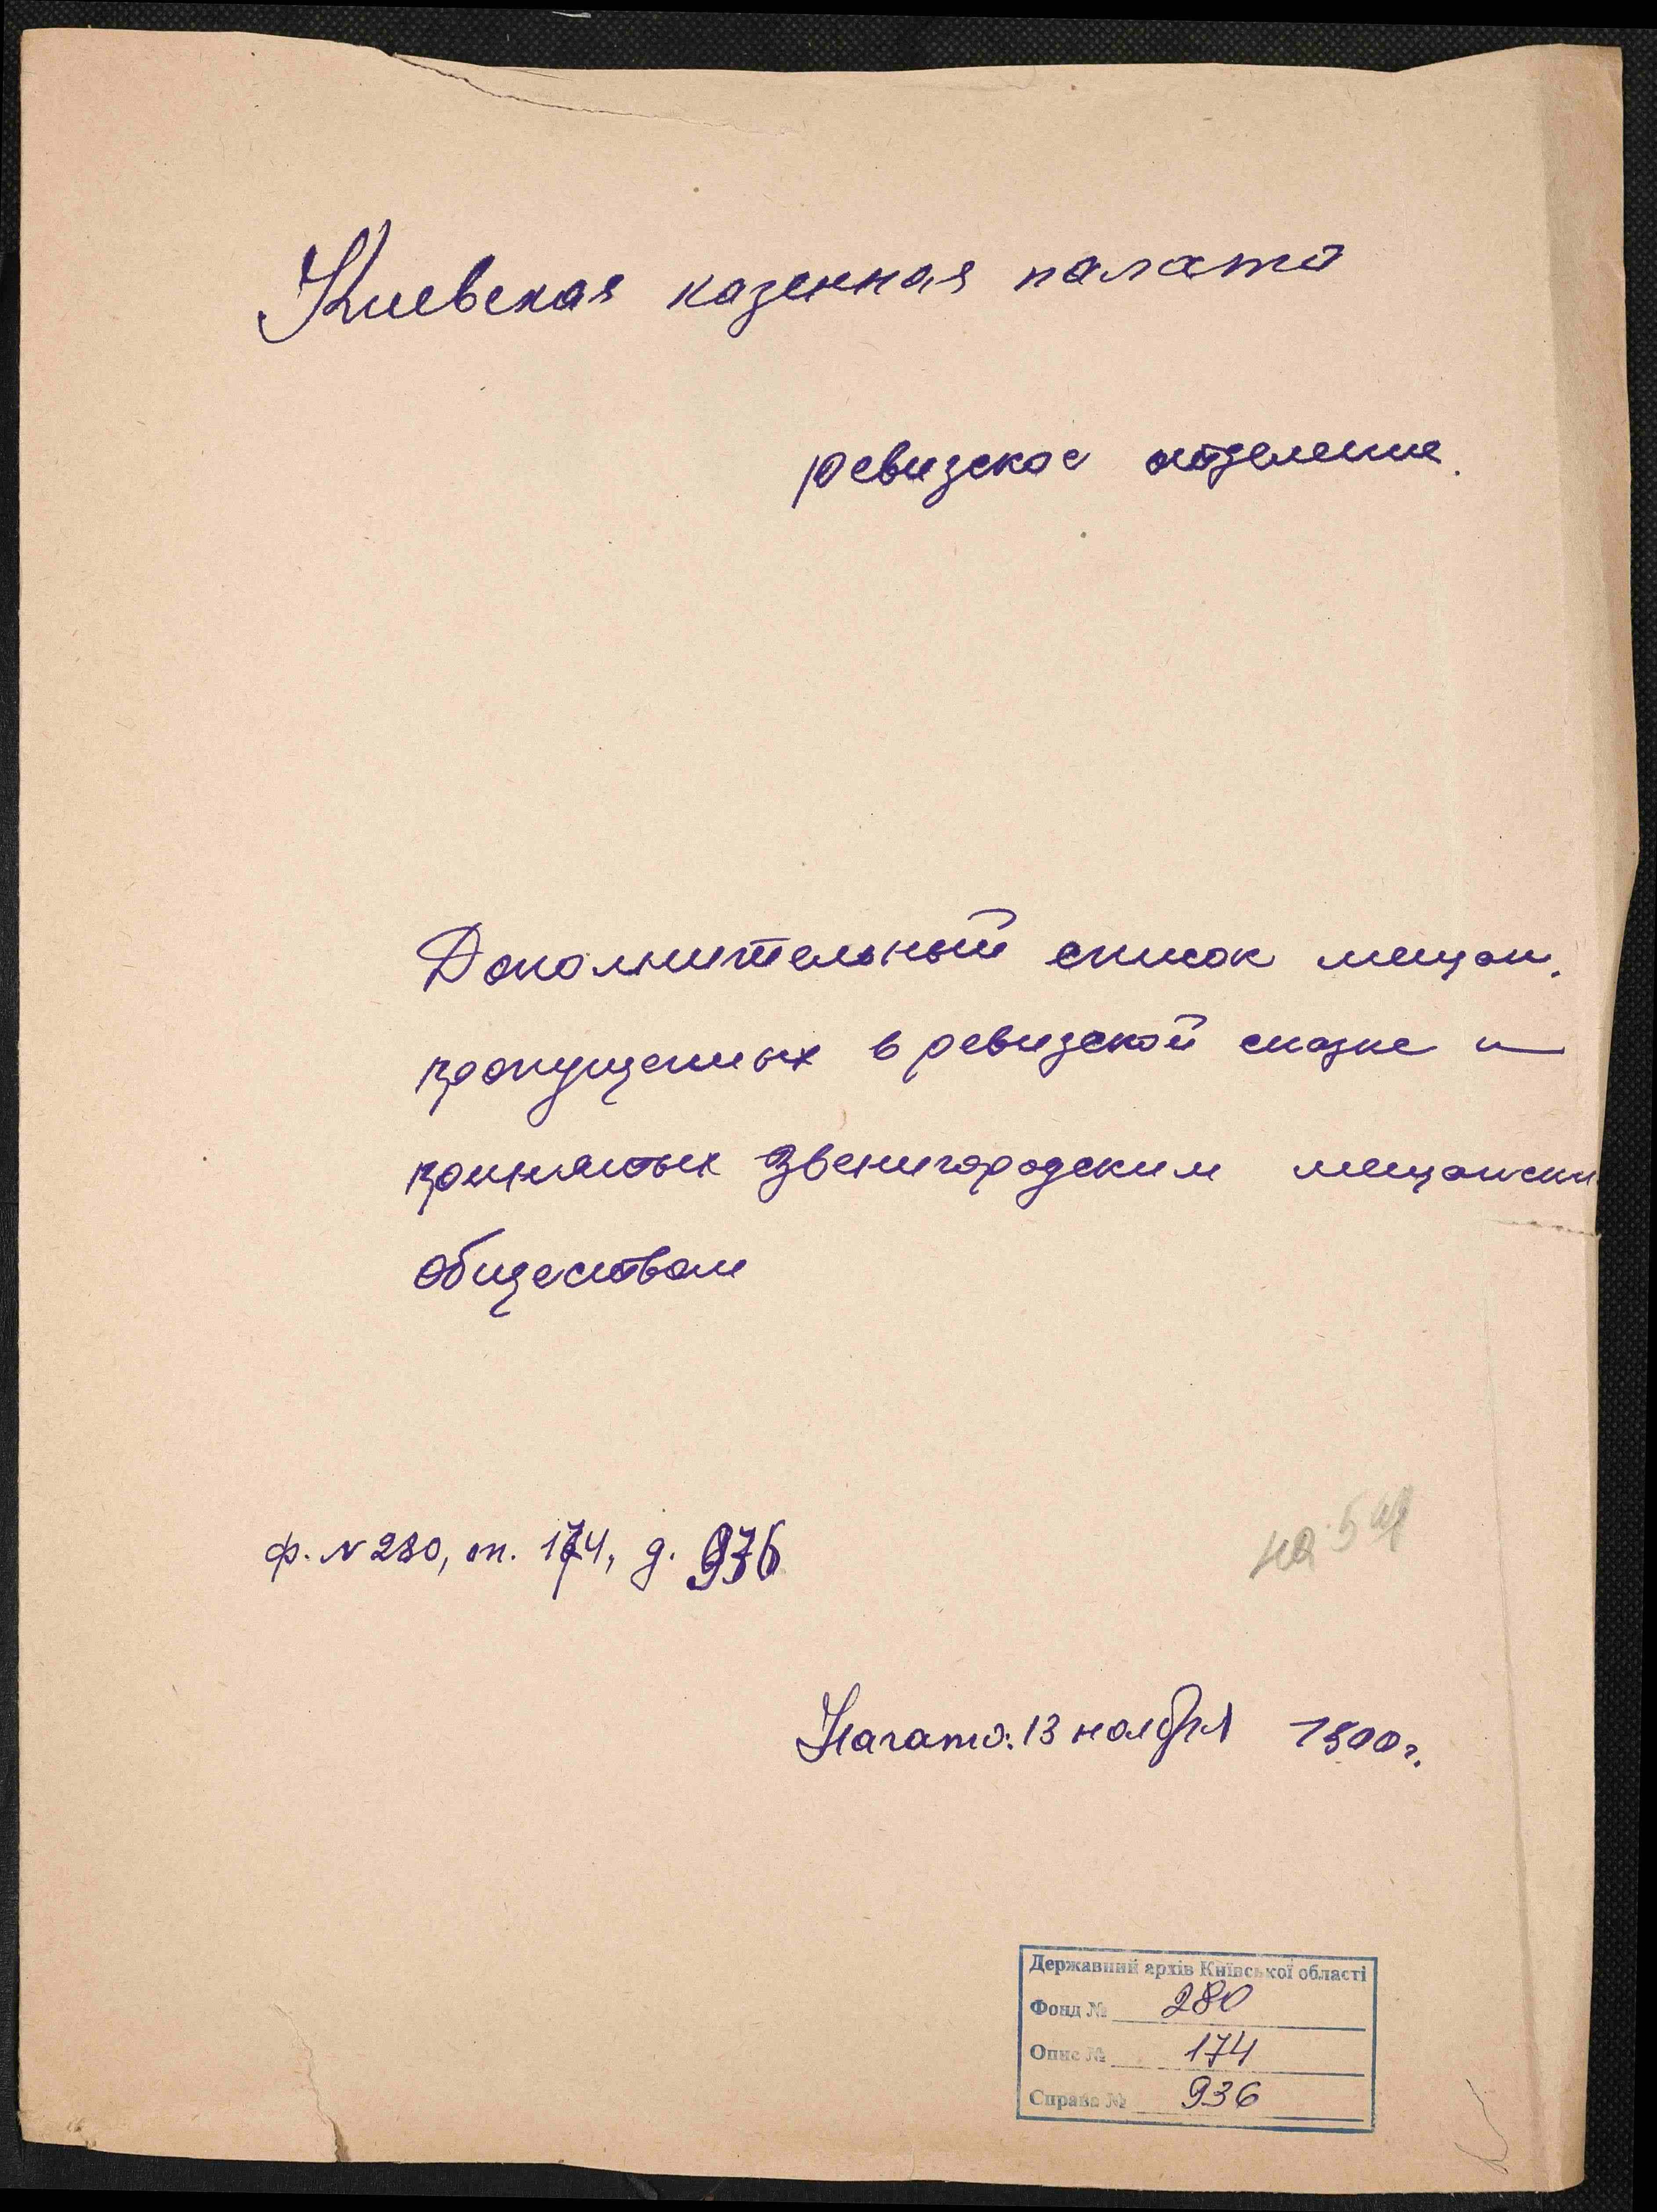 Киевская казенная палата
ревизское отделение.
Дополнительный список мещан,
пропущенных в ревизской сказке и
принятых Звенигородским мещански
обществом
ф. N 280, оп. 174, д. 936
на 5
Начато: 13 ноября 1900 г.
Державний архів Київської області
Фонд № 280
Опис № 174
Справа № 936